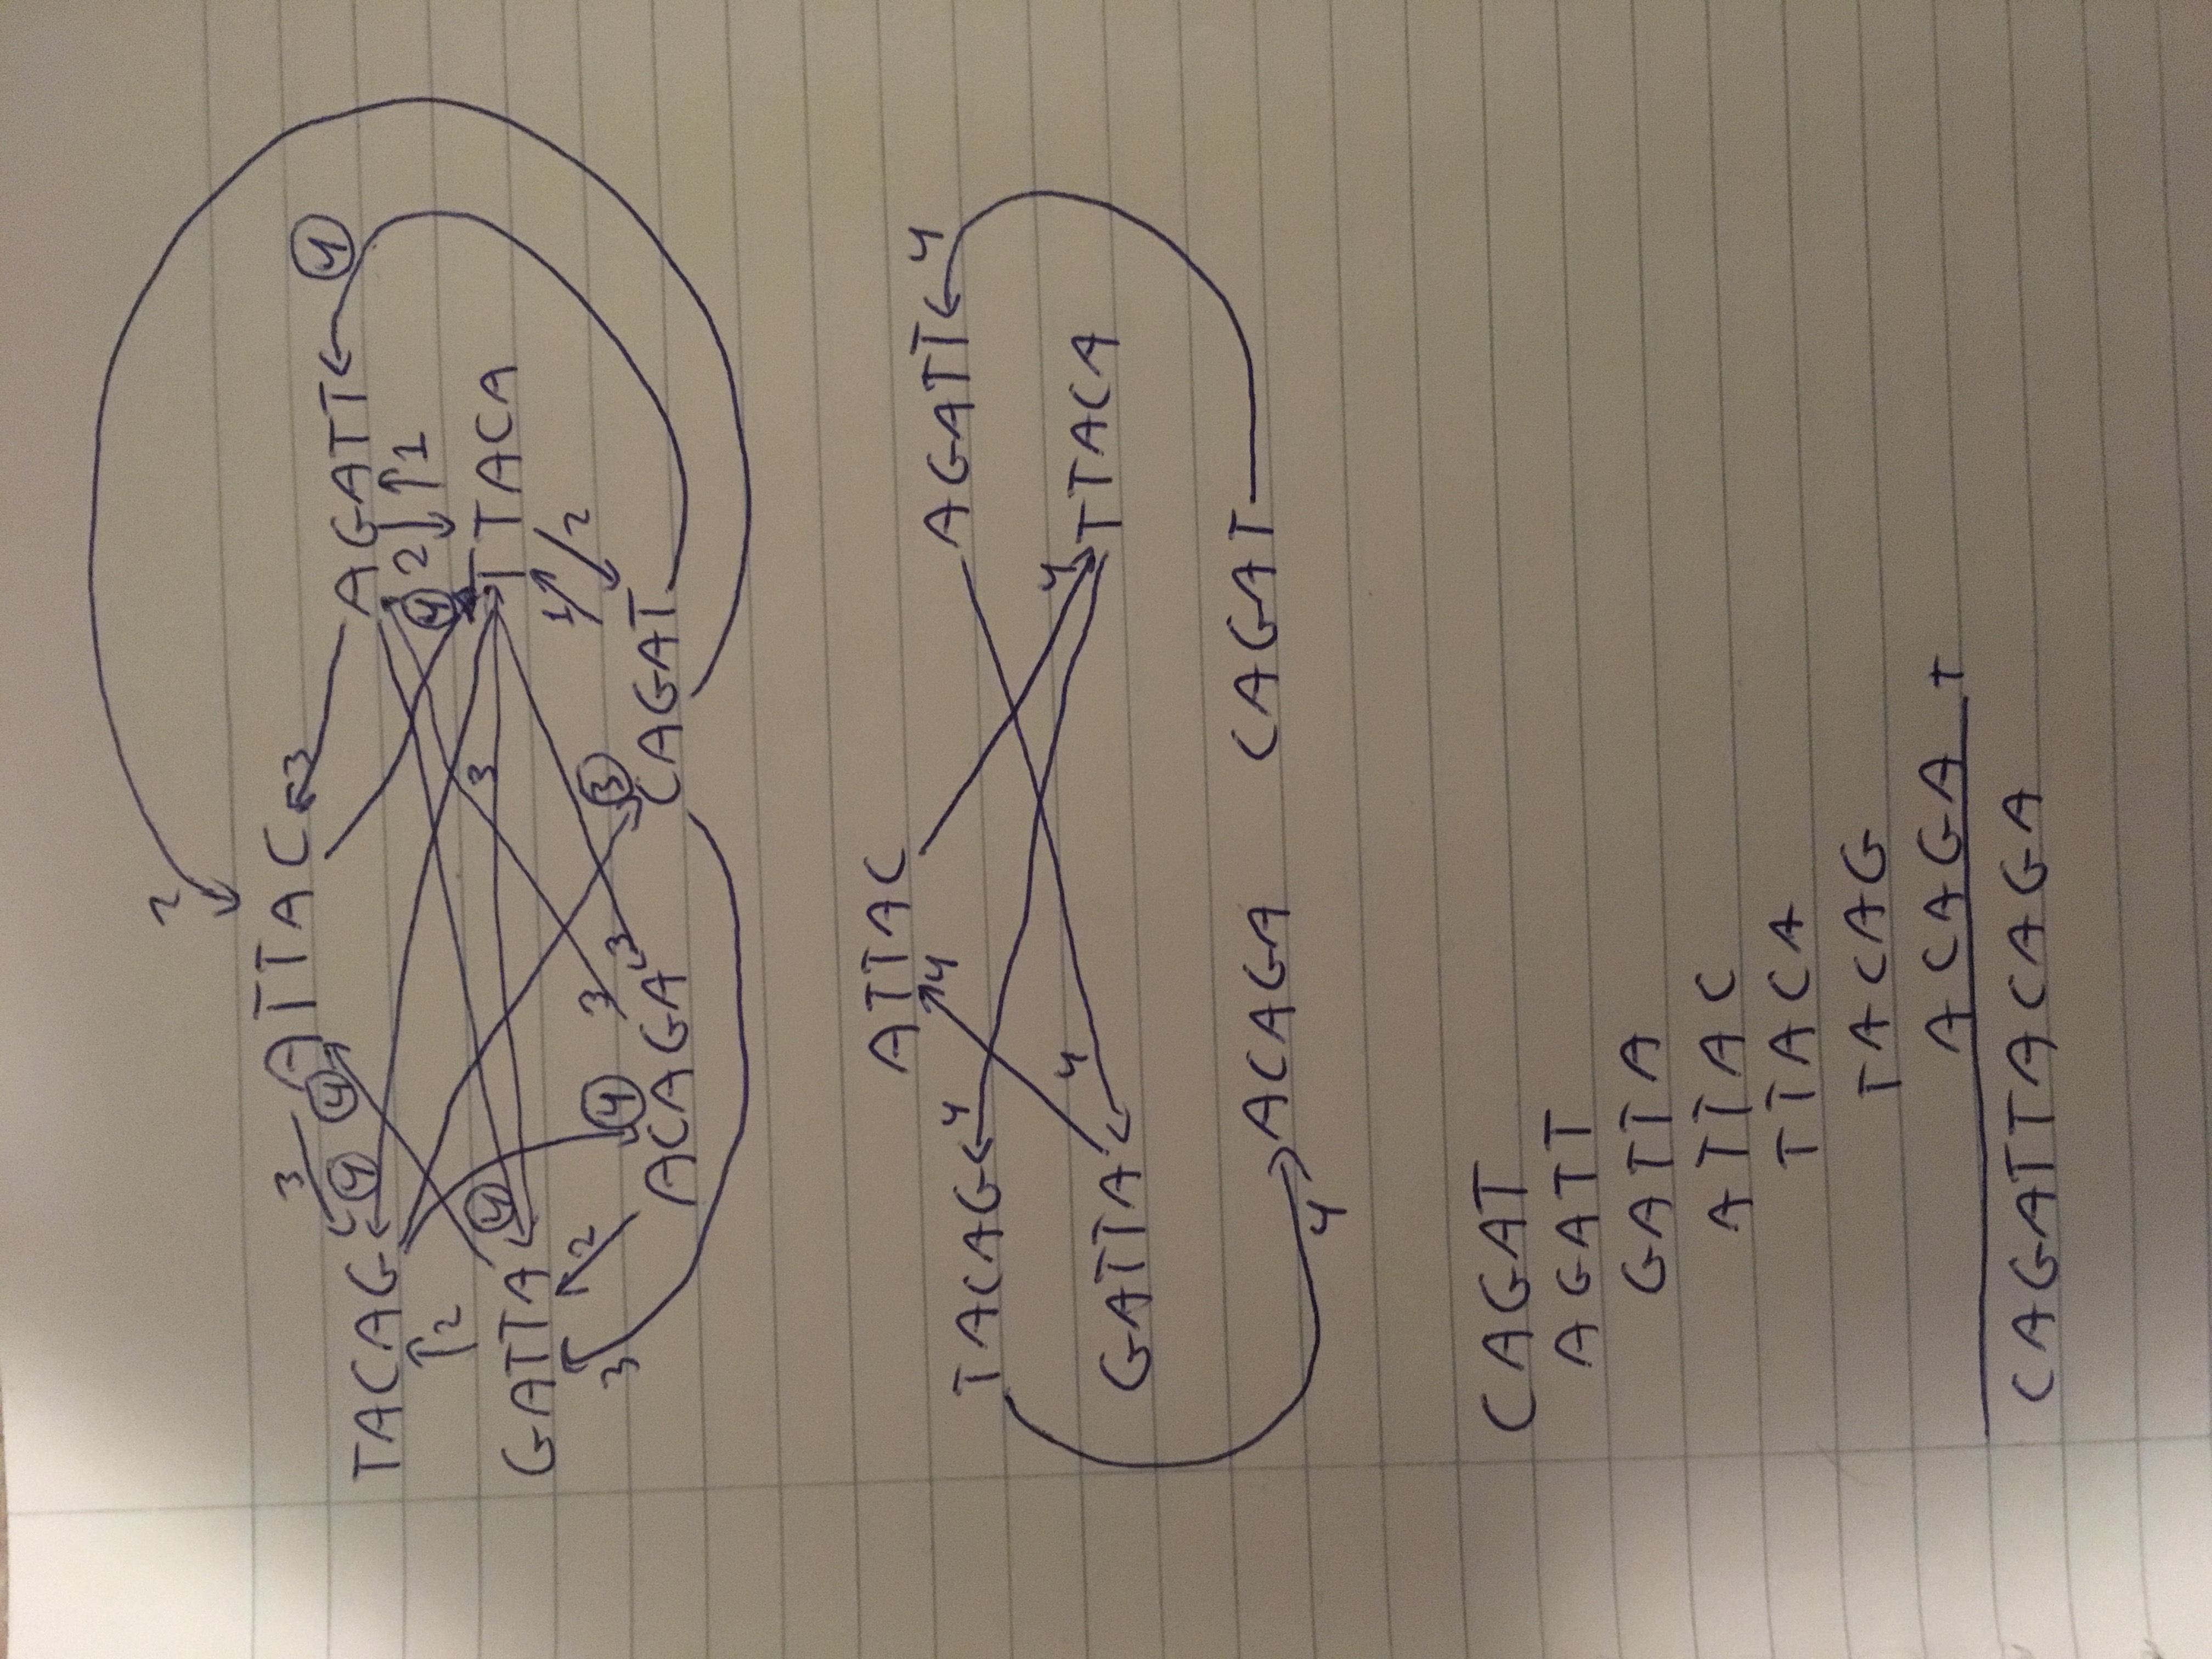 2
ATTAC
3
3
4
4
4
TACAG
AGATT
4
2
1
2
4
3
GATTA
TTACA
3
2
3
4
3
3
1
2
ACAGA
CAGAT
ATTAC
4
TACAG
4
AGATT
4
4
4
GATTA
TTACA
ACAGA
CAGAT
4
CAGAT
AGATT
GATTA
ATTAC
TTACA
TACAG
ACAGA +
CAGATTACAGA